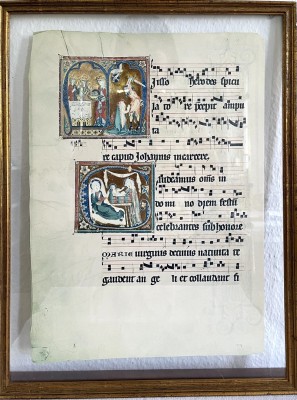 isso herodes specu
lato re precepit ampu
ta
re capud Johannis incarcere.
audeamus oms in
do mi no diem festu
celebrantes sub honore
MARIE virginis de cuius nativita te
gaudent an ge li et collaudant fi